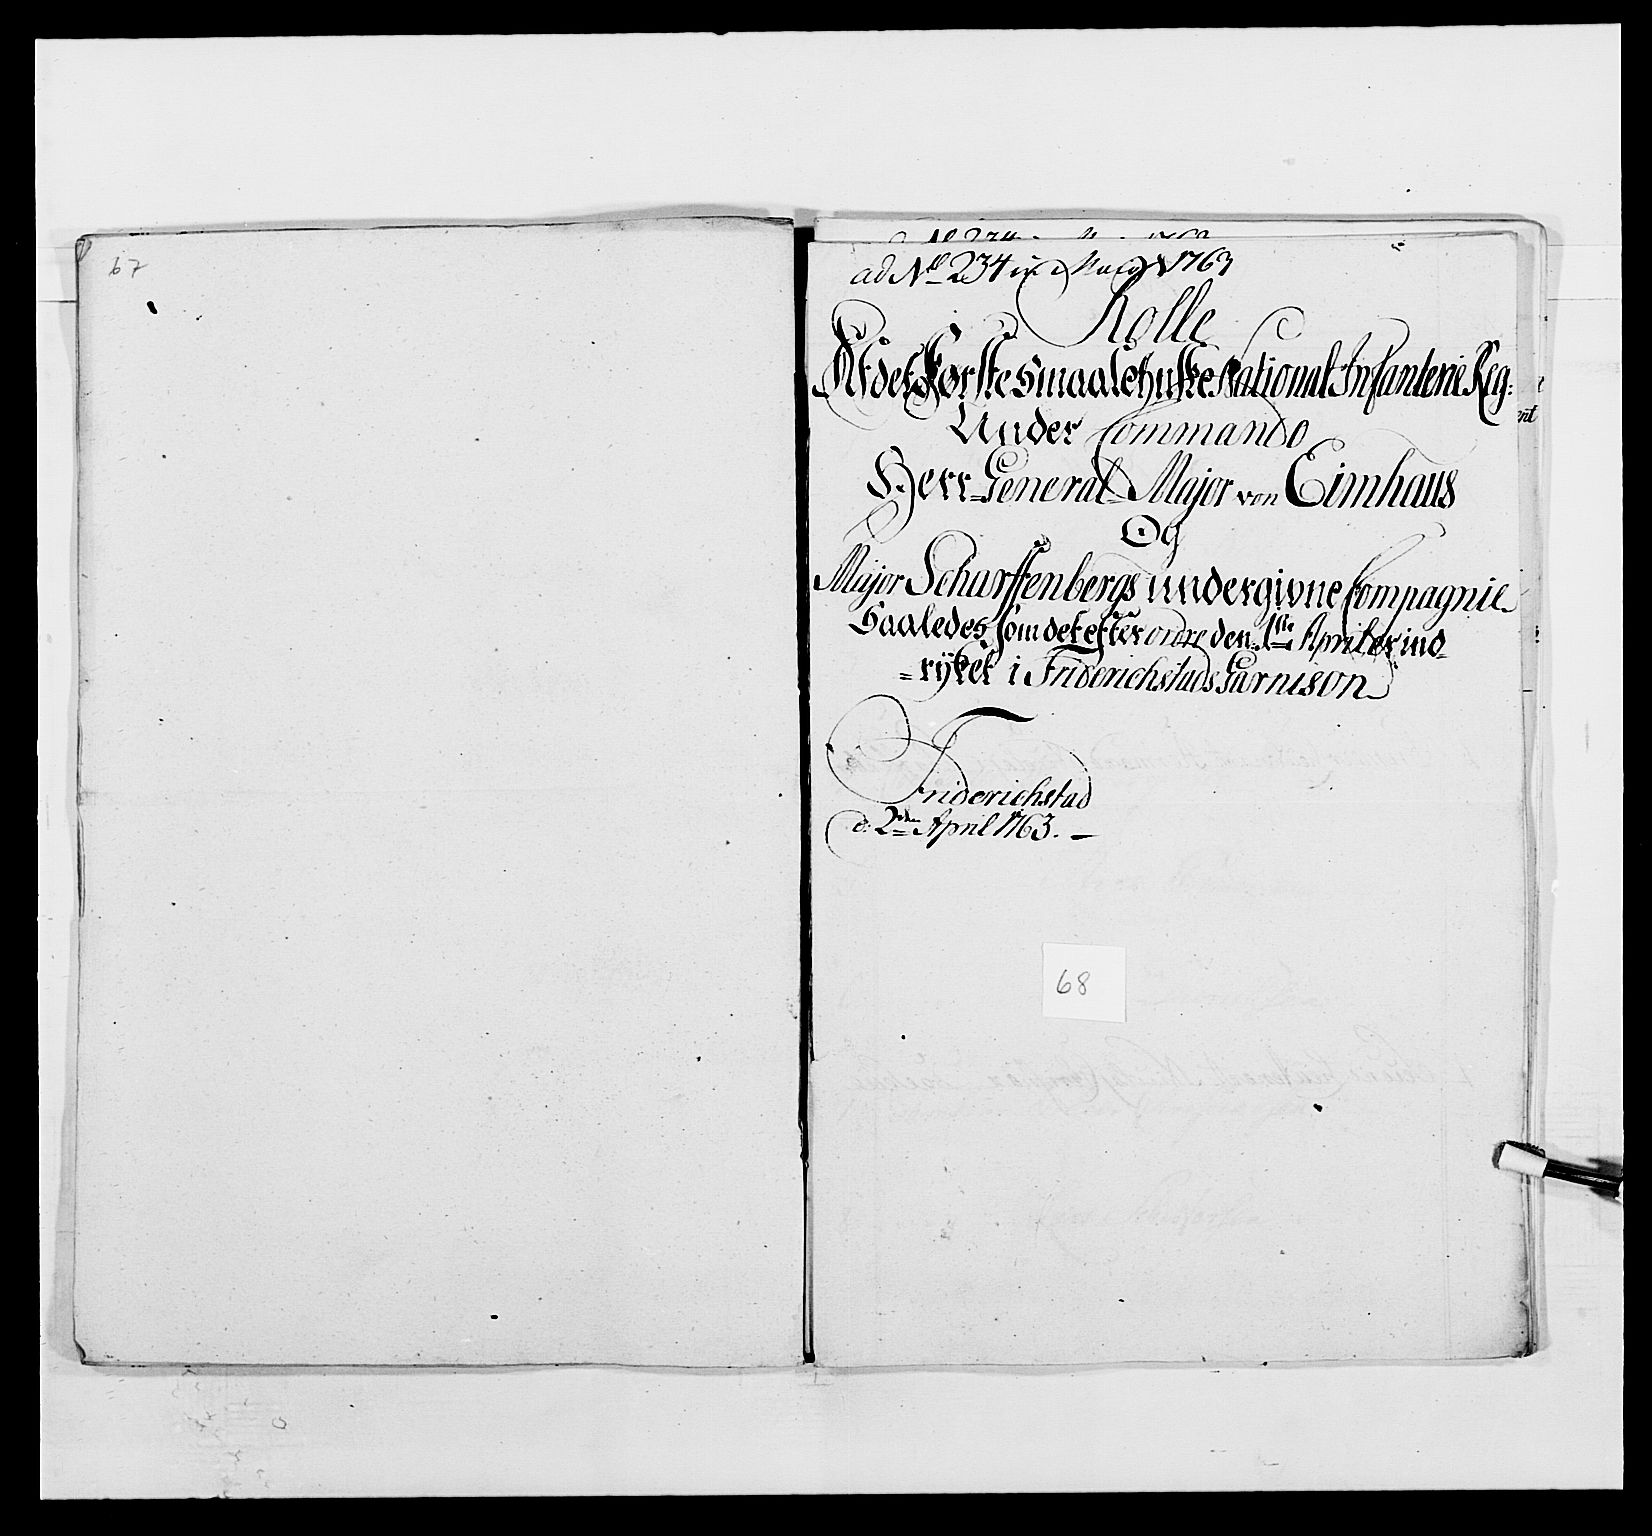 67
ad No 234 in 1763
Rolle
Af det Første Smaalehnske National Infanterie Reg:
ent
Under Commando
Herr General Major von Eimhaus
Og
Major Scharffenbergs undergivne Compagnie
Saaledes som det efter ordre den 1ste April er ind-
=rÿket i Friderichstads Garnison
Friderichstad
d: 2den April 1763. —
68